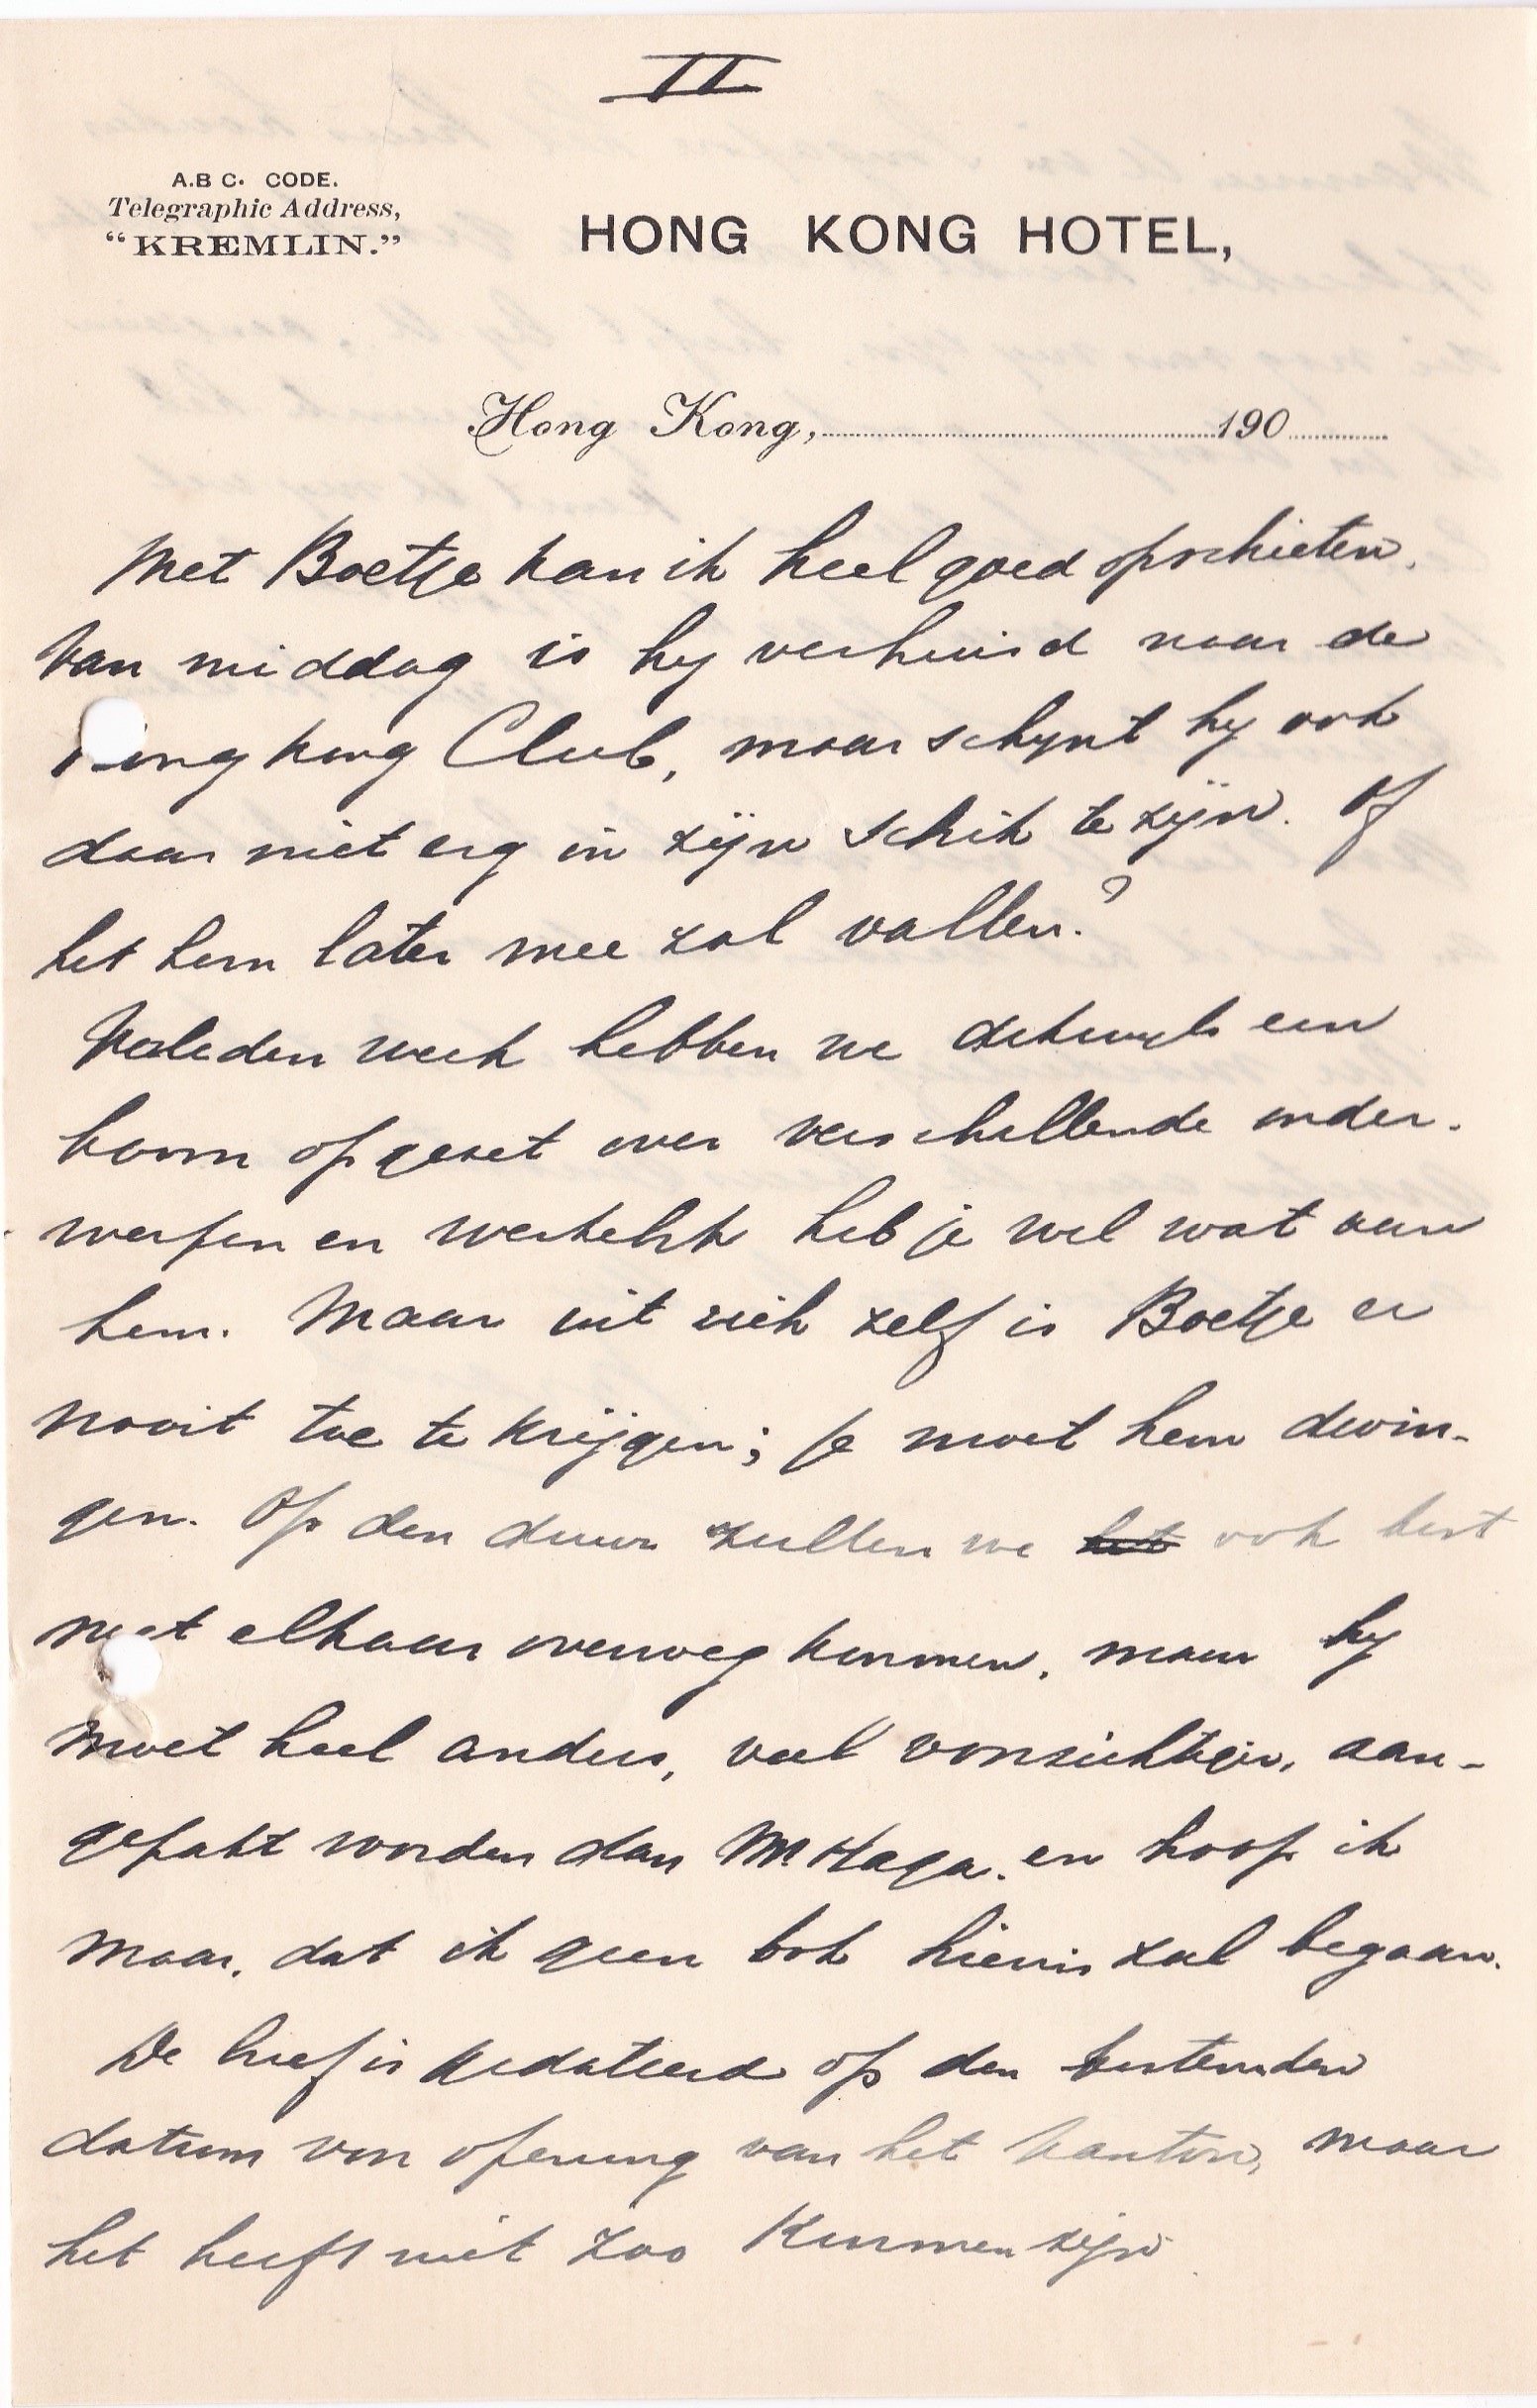 II
A.B C. CODE.
Telegraphic Address,
"KREMLIN."
HONG KONG HOTEL,
Hong Kong, 190
Met Boetje kan ik heel goed opschieten.
Van middag is hy verhuisd naar de
Hongkong Club, maar schynt hy ook
daar niet erg in zijn schik te zijn. Of
het hem later mee zal vallen?
Verleden week hebben we dikwyls een
boom opgezet over verschillende onder-
werpen en werkelyk heb je wel wat aan
hem. Maar uit zich zelf is Boetje er
nooit toe te krijgen; je moet hem dwin-
gen. Op den duur zullen we het ook best
met elkaar overweg kunnen, maar hy
moet heel anders, veel voorzichtiger, aan-
gepakt worden dan Mr Haga. en hoop ik
maar, dat ik geen bok hierin zal begaan.
De brief is gedateerd op den bestemden
datum van opening van het kantoor, maar
het heeft niet zoo kunnen zijn.